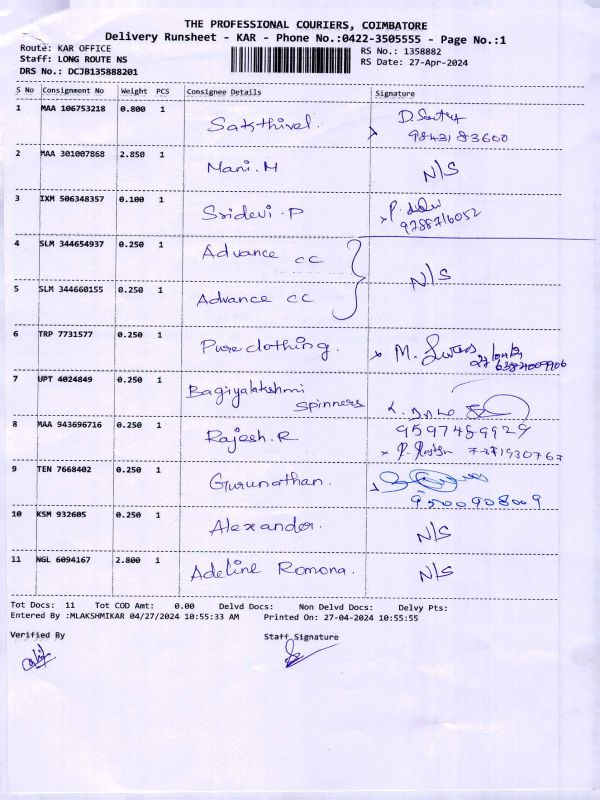 THE PROFESSIONAL COURIERS, COIMBATORE
Delivery Runsheet - KAR - Phone No.:0422-3505555 - Page No.:1
Route: KAR OFFICE
RS No.: 1358882
Staff: LONG ROUTE NS
RS Date: 27-Apr-2024
DRS No.: DCJB135888201
S No Consignment No Weight PCS Consignee Details Signature
1 MAA 106753218 0.800 1 Saksthivel.
9843183600
2 MAA 301007868 2.850 1 Mani.M N/S
3 IXM 506348357 0.100 1 Sridevi.P
9788716052
4 SLM 344654937 0.250 1 Advance CC
N/S
5 SLM 344660155 0.250 1 Advance CC
6 TRP 7731577 0.250 1 Pure clothing.
7 UPT 4024849 0.250 1 Bagiyalakshmi
spinners
8 MAA 943696716 0.250 1 Rajesh.R
9 TEN 7668402 0.250 1 Gurunathan.
9500908009
10 KSM 932605 0.250 1 Alexander. N/S
11 NGL 6094167 2.800 1 Adeline Romona. N/S
Tot Docs: 11 Tot COD Amt: 0.00 Delvd Docs: Non Delvd Docs: Delvy Pts:
Entered By :MLAKSHMIKAR 04/27/2024 10:55:33 AM Printed On: 27-04-2024 10:55:55
Verified By Staff Signature